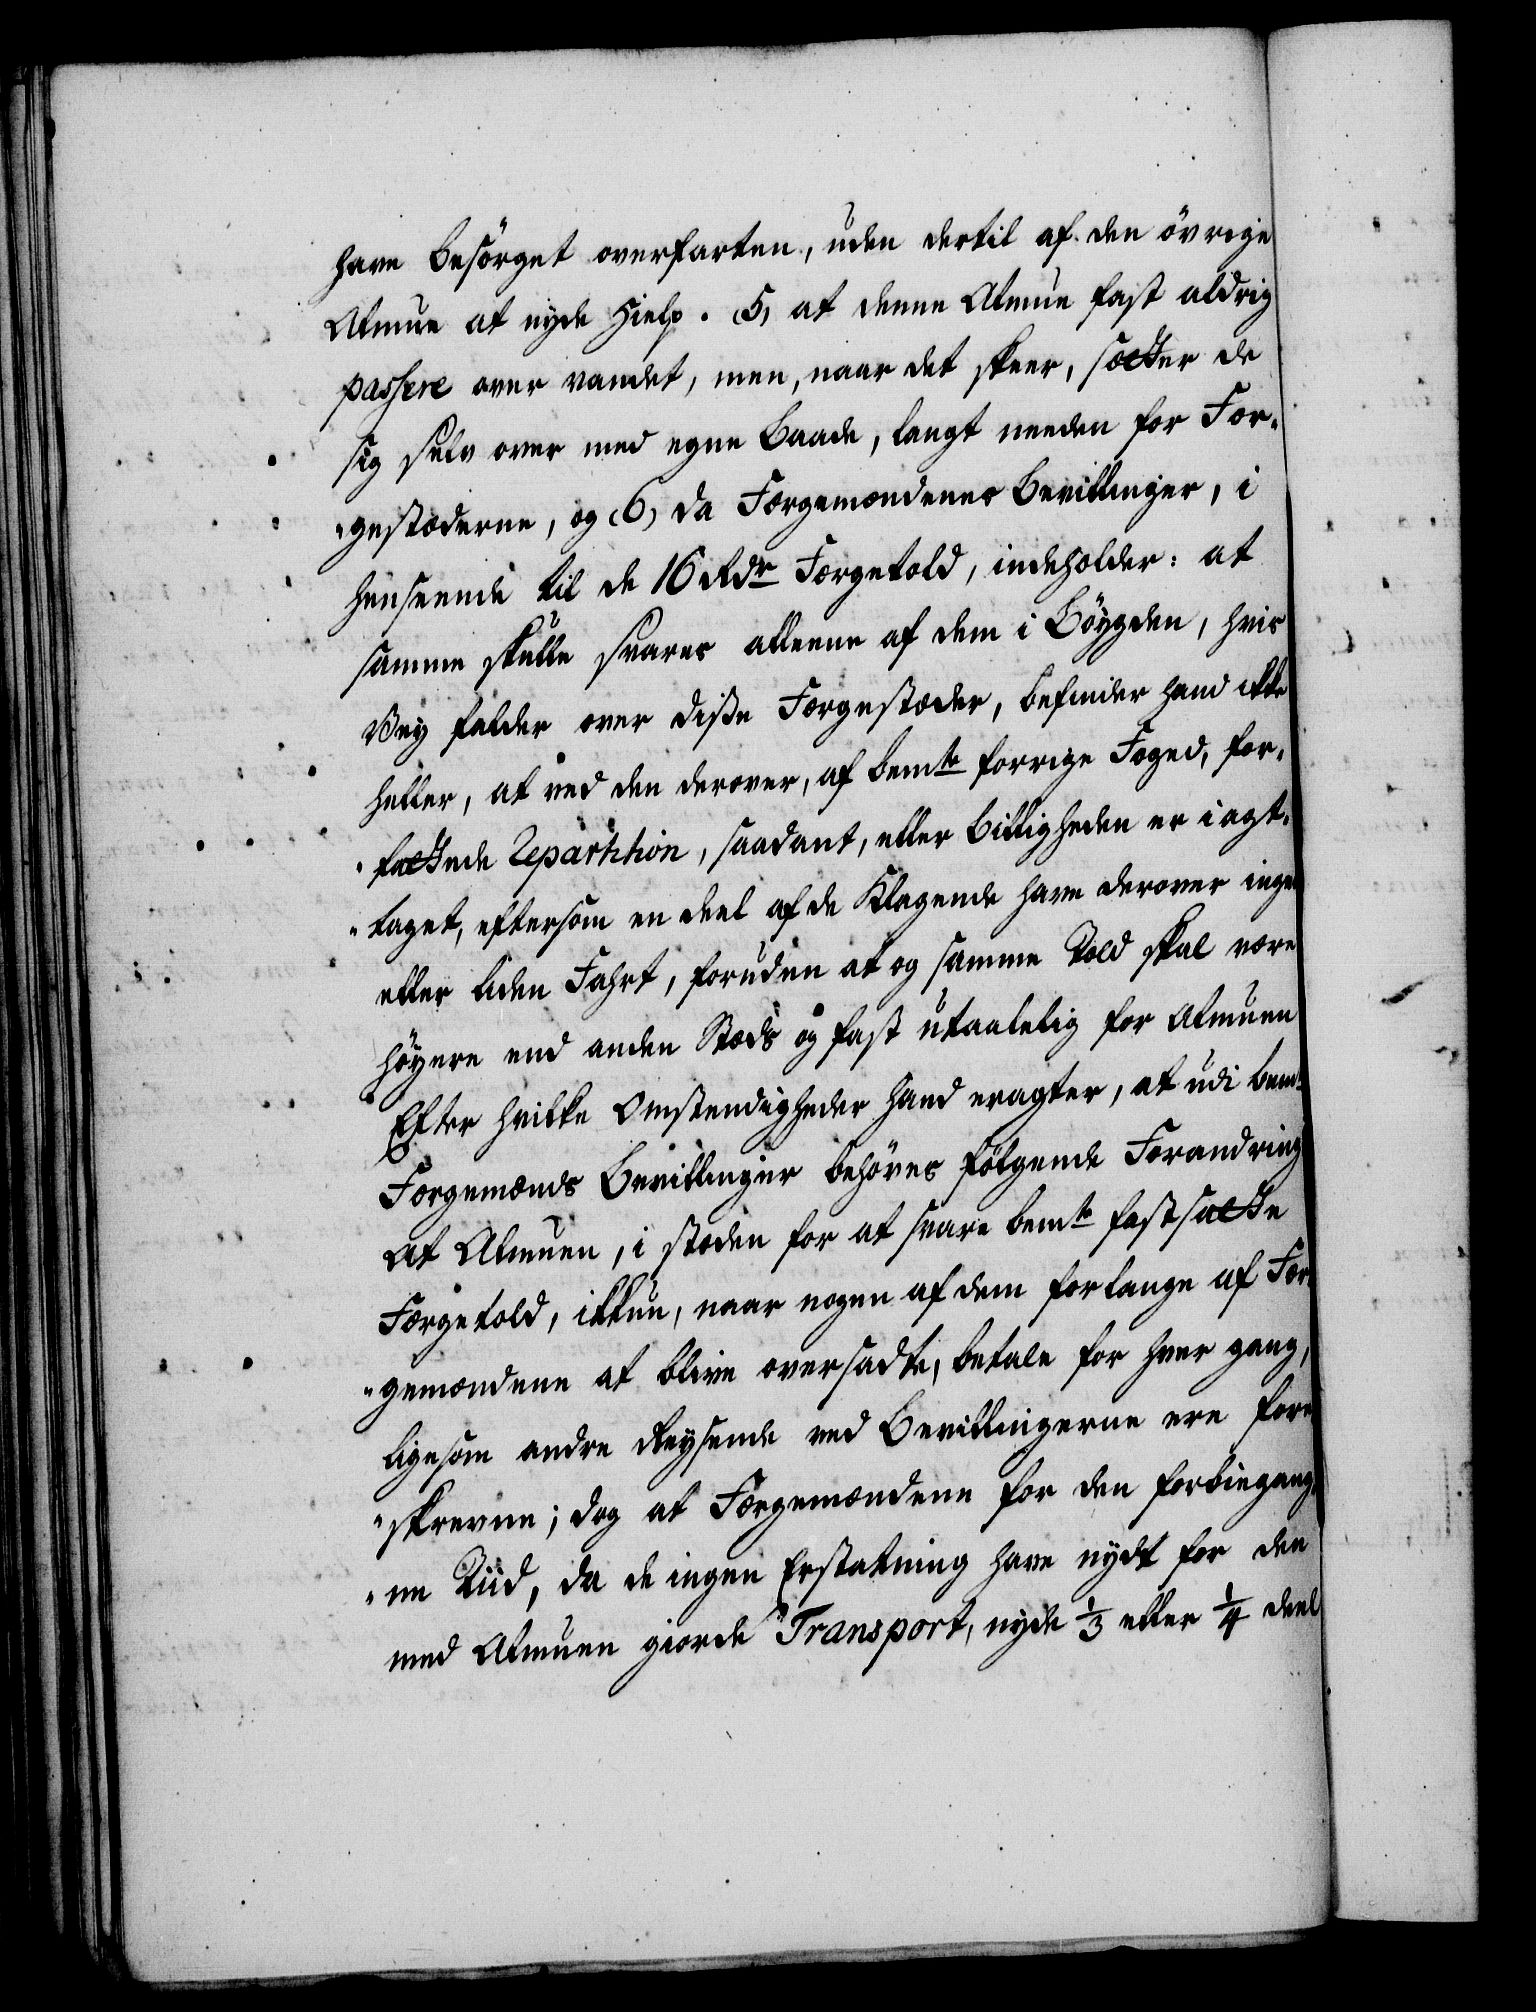 have besörget overfarten, uden dertil af den övrige
Almue at nyde Hielp. (5) at denne Almue fast aldrig
passere over vandet, men, naar det skeer, sætter de
sig selv over med egne Baade, langt neden for Fær-
"gestæderne, og (6) da Færgemændenes Bevillinger, i
henseende til de 16 Rdr Færgetold, indeholder: at
samme skulle svares alleene af dem i Böygden, hvis
Vey falder over disse Færgestæder, befinder hand ikke
heller, at ved den derover, af bemte forrige Foged, for-
"fattede Repartition, saadant, eller Billigheden er iagt-
"taget, eftersom en deel af de Klagende have derover ingen
eller liden Fahrt, foruden at og samme Told skal være
höyere end anden Stæds og fast utaalelig for Almuen
Efter hvilke Omstendigheder hand eragter, at udi bemte
Færgemænds Bevillinger behöves fölgende Forandring
At Almuen, i stæden for at svare bemte fastsatte
Færgetold, ikkun, naar nogen af dem forlange af Fær-
"gemændene at blive oversadte, betale for hver gang,
ligesom andre Reysende ved Bevillingerne ere fore
"skrevne; dog at Færgemændene for den forbiegang-
"ne Tiid, da de ingen Erstatning have nydt for den
med Almuen giorde Transport, nyde 1/3 eller 1/4 deel